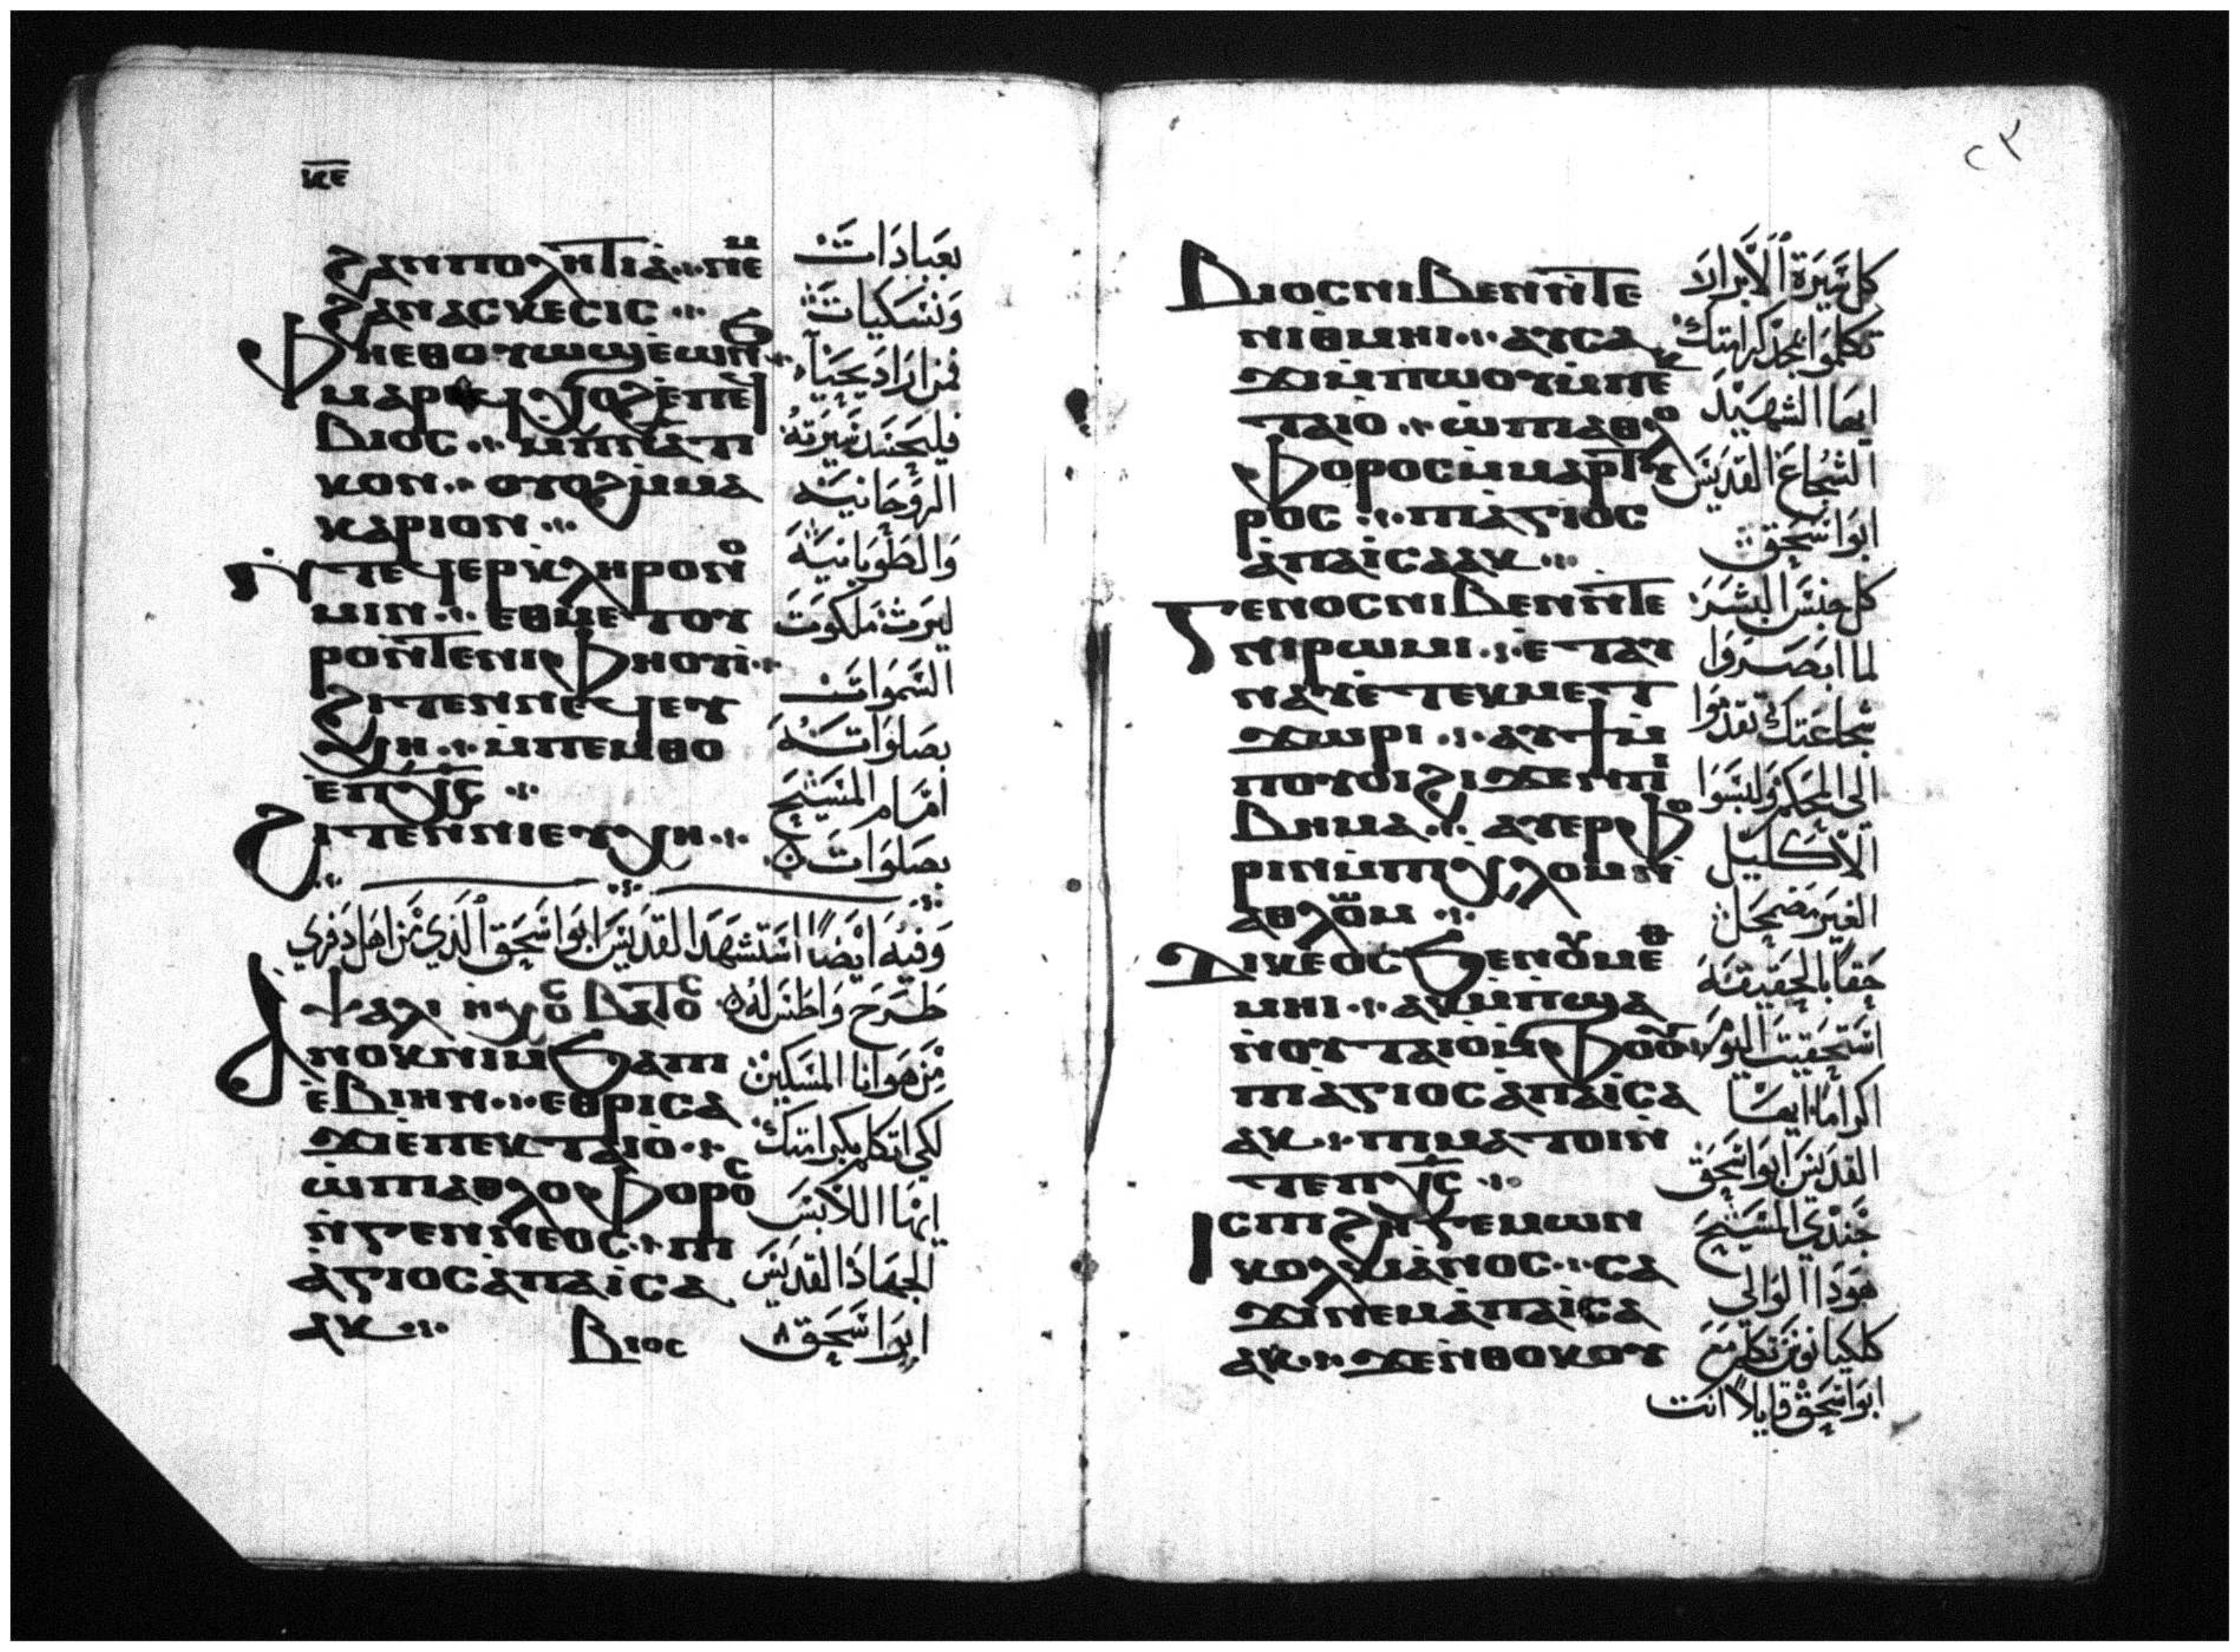 ⲕⲉ
ϩⲁⲛⲡⲟⲗⲏⲧⲓⲁ̀ ⲛⲉⲙ
ϩⲁⲛⲁⲥⲕⲉⲥⲓⲥ
Ⲫⲏⲉⲑⲟⲩⲱϣ ⲉ̀ⲱⲛϧ
ⲙⲁⲣⲉϥϭⲟϩ ⲉ̀ⲡⲉϥ
ⲃⲓⲟⲥ ⲙ̀ⲡⲛⲁⲧⲓ
ⲕⲟⲛ ⲟⲩⲟϩ ⲙ̀ⲙⲁ
ⲕⲁⲣⲓⲟⲛ
Ϩⲓⲛⲁ
ⲛ̀ⲧⲉϥⲉⲣⲕⲗⲏⲣⲟⲛⲟ
ⲙⲓⲛ ⲉⲑⲙⲉⲧⲟⲩ
ⲣⲟ ⲛ̀ⲧⲉ ⲛⲓⲫⲏⲟⲩⲓ̀
ϩⲓⲧⲉⲛ ⲛⲉϥⲉⲩ
ⲭⲏ ⲙ̀ⲡⲉⲙⲑⲟ
ⲉ̀ⲡⲭ̅ⲥ̅
Ϩⲓⲧⲉⲛ ⲛⲓⲉⲩⲭⲏ
بعبادات
ونسكيات
فمن اراد يحيا
فليحسد سيرته
الروحانية
والطوبانية
ليرث ملكوت
السموات
بصلواته
امام المسيح
بصلوات
وفيه ايضا استشهد القديس ابوا سحق الذي من اهل دفري
Ⲯⲁⲗⲓ ⲏⲭⲟⲥ ⲃⲁⲧⲟⲥ طرح واطس له
Ⲁⲛⲟⲕ ⲛⲓⲙ ϧⲁ ⲡⲓ
ⲉ̀ⲃⲓⲏⲛ ⲉⲑⲣⲓⲥⲁ
ϫⲓ ⲉ̀ⲡⲉⲕⲧⲁⲓⲟ̀
ⲱ̀ ⲡⲓⲁⲑⲗⲟⲫⲟⲣⲟⲥ
ⲛ̀ⲅⲉⲛⲛⲉⲟⲥ ⲡⲓ
ⲁ̀ⲅⲓⲟⲥ ⲁ̀ⲡⲁ ⲓ̀ⲥⲁ
ⲁⲕ
Ⲃⲓⲟⲥ
من هو انا المسكين
لكي اتكلم بكرامتك
ايها اللابس
الجهاد القديس
ابوا سحق
٢٣
Ⲃⲓⲟⲥ ⲛⲓⲃⲉⲛ ⲛ̀ⲧⲉ
ⲛⲓⲑⲙⲏⲓ ⲁⲩⲥⲁ
ϫⲓ ⲙ̀ⲡⲱⲟⲩ ⲙ̀ⲡⲉⲕ
ⲧⲁⲓⲟ ⲱ̀ ⲡⲓⲁⲑⲗⲟ
ⲫⲟⲣⲟⲥ ⲙ̀ⲙⲁⲣⲧⲩ
ⲣⲟⲥ ⲡⲓⲁ̀ⲅⲓⲟⲥ
ⲁ̀ⲡⲁ ⲓ̀ⲥⲁⲁⲕ
Ⲅⲉⲛⲟⲥ ⲛⲓⲃⲉⲛ ⲛ̀ⲧⲉ
ⲛⲓⲣⲱⲙⲓ ⲉ̀ⲧⲁⲩ
ⲛⲁⲩ ⲉ̀ⲧⲉⲕⲙⲉⲧ
ϫⲱⲣⲓ ⲁⲩϯ ⲙ̀
ⲡⲟⲩⲟⲓ ϩⲓϫⲉⲛ ⲡⲓ
ⲃⲏⲙⲁ ⲁⲩⲉⲣⲫⲟ
ⲣⲓⲛ ⲙ̀ⲡⲓⲭⲗⲟⲙ ⲛ̀
ⲁⲑⲗⲱⲙ
Ⲇⲓⲕⲉⲟⲥ ϧⲉⲛ ⲟⲩⲙⲉⲑ
ⲙⲏⲓ ⲁⲕⲙ̀ⲡϣⲁ
ⲛ̀ⲟⲩⲧⲁⲓⲟ ⲙ̀ⲫⲟⲟⲩ
ⲡⲓⲁ̀ⲅⲓⲟⲥ ⲁ̀ⲡⲁ ⲓ̀ⲥⲁ
ⲁⲕ ⲡⲓⲙⲁⲧⲟⲓ ⲛ̀
ⲧⲉ ⲡⲭ̅ⲥ̅
Ⲓⲥ ⲡⲓϩⲏⲅⲉⲙⲱⲛ
ⲕⲟⲗⲕⲓⲁⲛⲟⲥ ⲥⲁ
ϫⲓ ⲛⲉⲙ ⲁ̀ⲡⲁ ⲓ̀ⲥⲁ
ⲁⲕ ϫⲉ ⲛ̀ⲑⲟⲕ ⲟⲩ
كل سيرة الابرار
تكلموا بمجد كرامتك
ايها الشهيد
الشجاع القديس
ابوا سحق
كل جنس البشر
لما ابصروا
شجاعتك تقدموا
الى الحكم ولبسوا
الاكليل
الغير مضمحل
حقا بالحقيقة
استحقيت اليوم
اكراما ايها
القديس ابوا سحق
جندي المسيح
هوذا الوالي
كلكيانوس تكلم مع
ابوا سحق قايلا انت